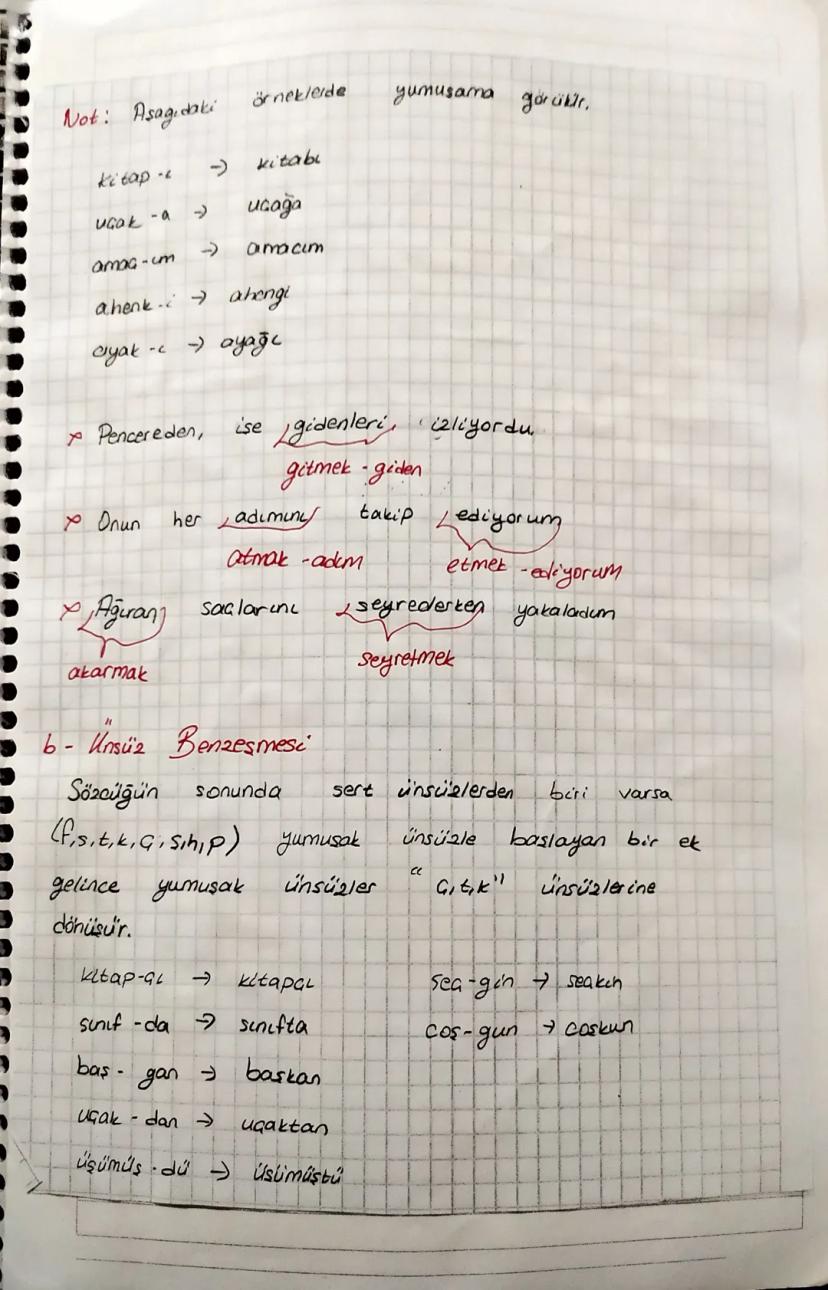 Not: Aşağıdaki örneklerde yumuşama görülür.
kitap-ı → kitabı
uçak -a → uçağa
amaç-ım → amacım
ahenk-i → ahengi
ayak -ı → ayağı
x Pencereden, ise gidenleri izliyordu.
gitmek - giden
x Onun her adımını takip ediyorum
atmak -adım etmek -ediyorum
x Ağıran saçlarını seyrederken yakaladım
akarmak seyretmek
b- Ünsüz Benzeşmesi
Sözcüğün sonunda sert ünsüzlerden biri varsa
(f,s,t,k,ç,ş,h,p) yumuşak ünsüzle başlayan bir ek
gelince yumuşak ünsüzler "ç,t,k" ünsüzlerine
dönüşür.
kitap-çı → kitapçı seç-gin → seçkin
sınıf -da → sınıfta coş-gun → coşkun
baş- gan → başkan
uçak - dan → uçaktan
üşümüş -dü → üşümüştü